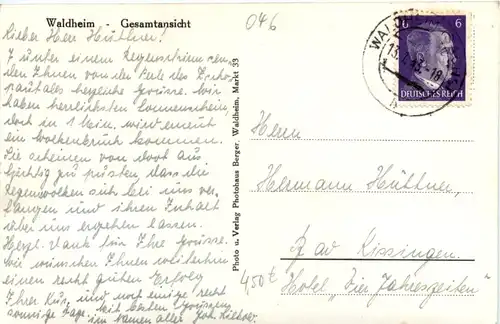 Waldheim - Gesamtansicht
046
Lieber Herr Hüttner!
7 unter einem Regenschirm sen-
den Ihnen von der Perle des Zscho-
pautales herzliche Grüsse. Wir
haben herrlichsten Sonnenschein
doch in 1 Min. wird erneut
ein Wolkenbruch kommen.
Sie scheinen von dort aus
tüchtig zu pusten, dass die
Regenwolken sich bei uns ver-
fangen und ihren Inhalt
über uns ergehen lassen.
Herzl. Dank für Ihre Grüsse.
Wir wünschen Ihnen weiterhin
einen recht guten Erfolg
Ihrer Kur, und noch einige recht
sonnige Tage. Mit besten Grüssen
im Namen aller Joh.
Photo u. Verlag Photohaus Berger, Waldheim, Markt 33
WALDHEIM
6 6
DEUTSCHES REICH
Herrn
Hermann Hüttner,
Bad Kissingen
Hotel „Vier Jahreszeiten"
4,50 €